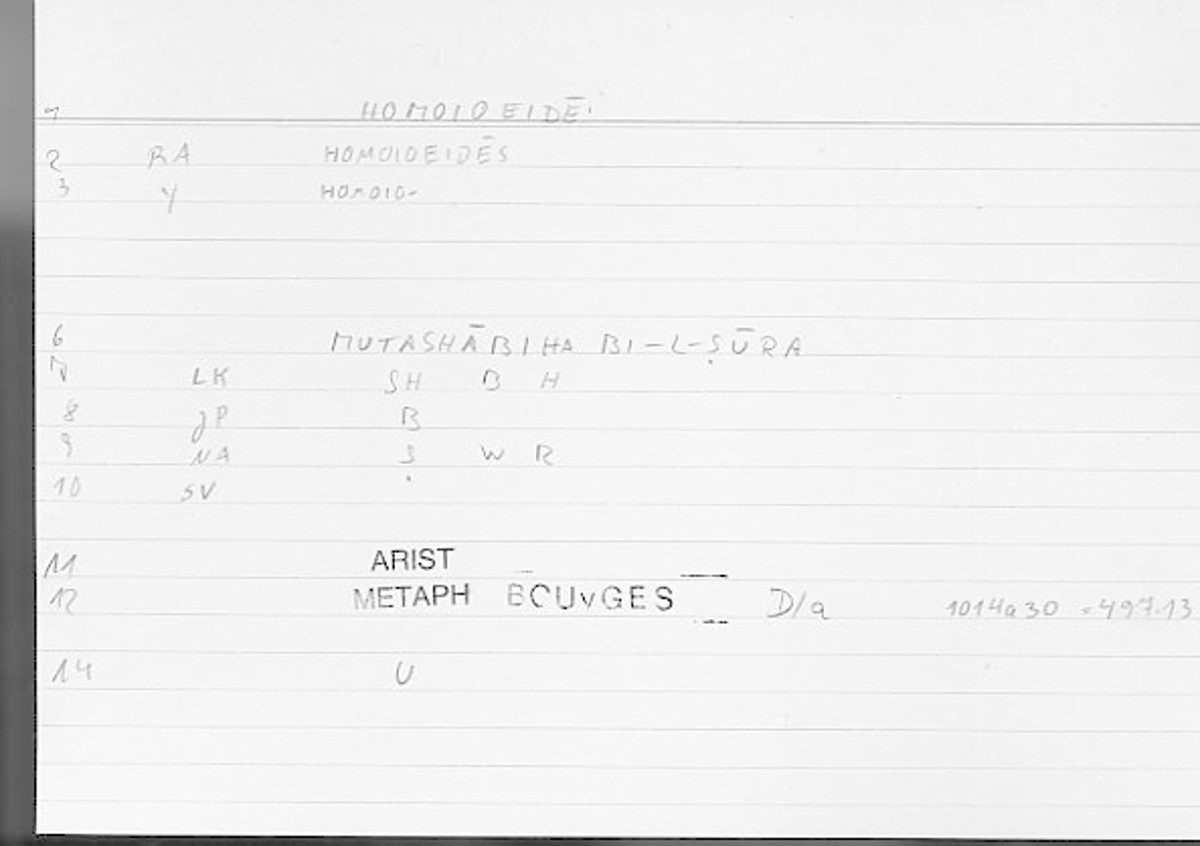 1 HOMOIOEIDĒ
2 RA HOMOIOEIDĒS
3 Y HOMOIO-
6 MUTASHĀBIHA BI-L-ṢŪRA
7 LK SH B H
8 JP B
9 NA Ṣ W R
10 SV
11 ARIST
12 METAPH BOUYGES D/a 1014a30 =497.13
14 U